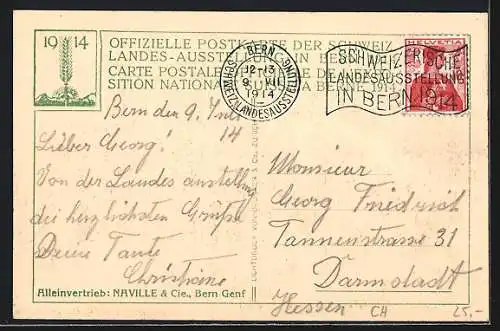 19 14
OFFIZIELLE POSTKARTE DER SCHWEIZ.
LANDES-AUSSTELLUNG IN BERN
CARTE POSTALE
SITION NATIONALE À BERNE 1914
BERN
12-13
9. VII.
1914
SCHWEIZ. LANDESAUSSTELLUNG
SCHWEIZERISCHE
LANDESAUSSTELLUNG
IN BERN 1914
HELVETIA
Bern den 9. Juli
14
Lieber Georg!
Von der Landesausstellung
die herzlichsten Grüße
Deine Tante
Christiane
Monsieur
Georg Friedrich
Tannenstrasse 31
Darmstadt
Hessen
Alleinvertrieb: NAVILLE & Cie., Bern Genf
CH
25.-